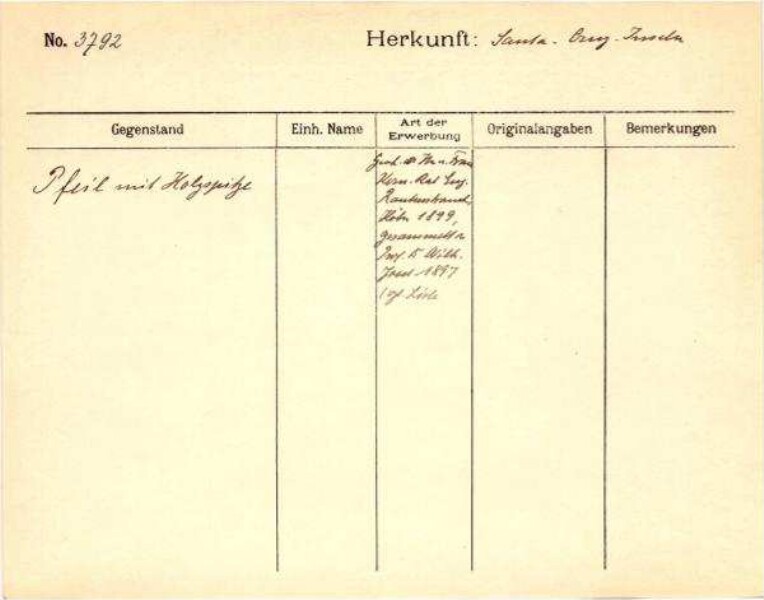 No. 3792
Herkunft: Santa-Cruz-Inseln
Gegenstand
Einh. Name
Art der Erwerbung
Originalangaben
Bemerkungen
Pfeil mit Holzspitze
Gesch. Hr u. Frau
Kom. Rat Eug.
Rautenstrauch
Köln 1899,
gesammelt v.
Prof. Dr Wilh.
Joest 1897
Liste